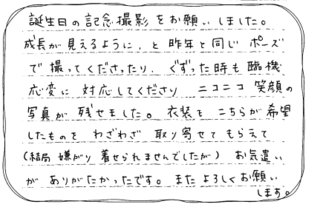 誕生日の記念撮影をお願いしました。
成長が見えるように、と昨年と同じポーズ
で撮ってくださったり、ぐずった時も臨機
応変に対応してくださり ニコニコ笑顔の
写真が残せました。衣装をこちらが希望
したものをわざわざ取り寄せてもらえて
(結局嫌がり着せられませんでしたが) お気遣い
がありがたかったです。またよろしくお願い
します。